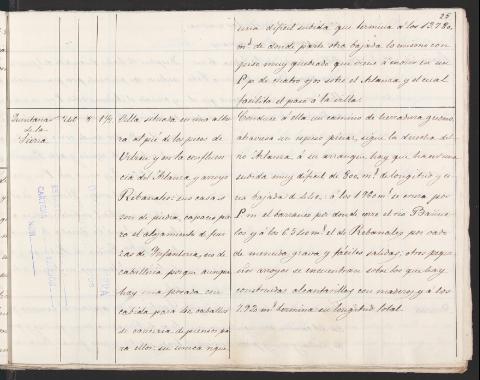 25
una dificil subida que termina á los 13.780
m.s de donde parte otra bajada lo mismo con
piso muy quebrado que viene á morir en un
P.p. de cuatro ojos sobre el Arlanza y el cual
facilita el paso á la villa.
Quintanar
de la
Sierra
Villa situada en una altu
ra al pié de los picos de
Urbion y en la confluen
cia del Arlanza y arroyo
Rebanales: sus casas
son de piedra, capaces pa
ra el alojamiento de fuer
zas de Infantería, no de
caballería porque aunque
hay una posada con
cabida para 40 caballos
se carecería de piensos pa
ra ellos: su unica rique
Conduce á ella un camino de herradura que
atraviesa un espeso pinar, sigue la derecha del
rio Arlanza á su arranque hay que hacer una
subida muy dificil de 800 m.s de longitud y u
na bajada de 440: á los 1960 m.s se cruza por
P. m. el barranco por donde corre el rio
y á los 6340 m.s el de Rebanales por vado
de menuda grava y fáciles salidas; otros peque
ños arroyos se encuentran sobre los que hay
construidas alcantarillas con maderos y á los
7.920 m.s termina su longitud total.